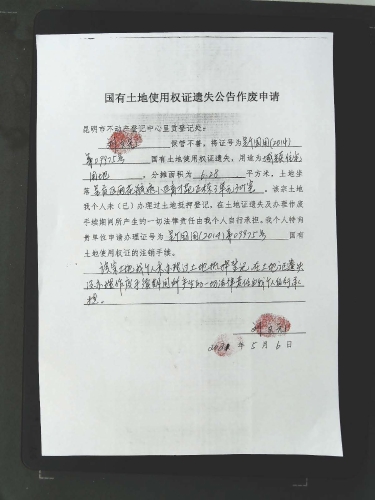 国有土地使用权证遗失公告作废申请
昆明市不动产登记中心呈贡登记处:
保管不善,将证号为呈国用(2014)
第09975号 国有土地使用权证遗失,用途为城镇住宅
用地,分摊面积为6.28平方米,土地坐
落呈贡 。该宗土地
我个人未(已)办理过土地抵押登记。在土地证遗失及办理作废
手续期间所产生的一切法律责任由我个人自行承担。我个人特向
贵单位申请办理证号为呈国用(2014)第09975号 国有
土地使用权证的注销手续。
该宗土地我个人未办理过土地抵押登记,在土地证遗失
及办理作废手续期间所产生的一切法律责任由我个人自行承
担。
年5月6日